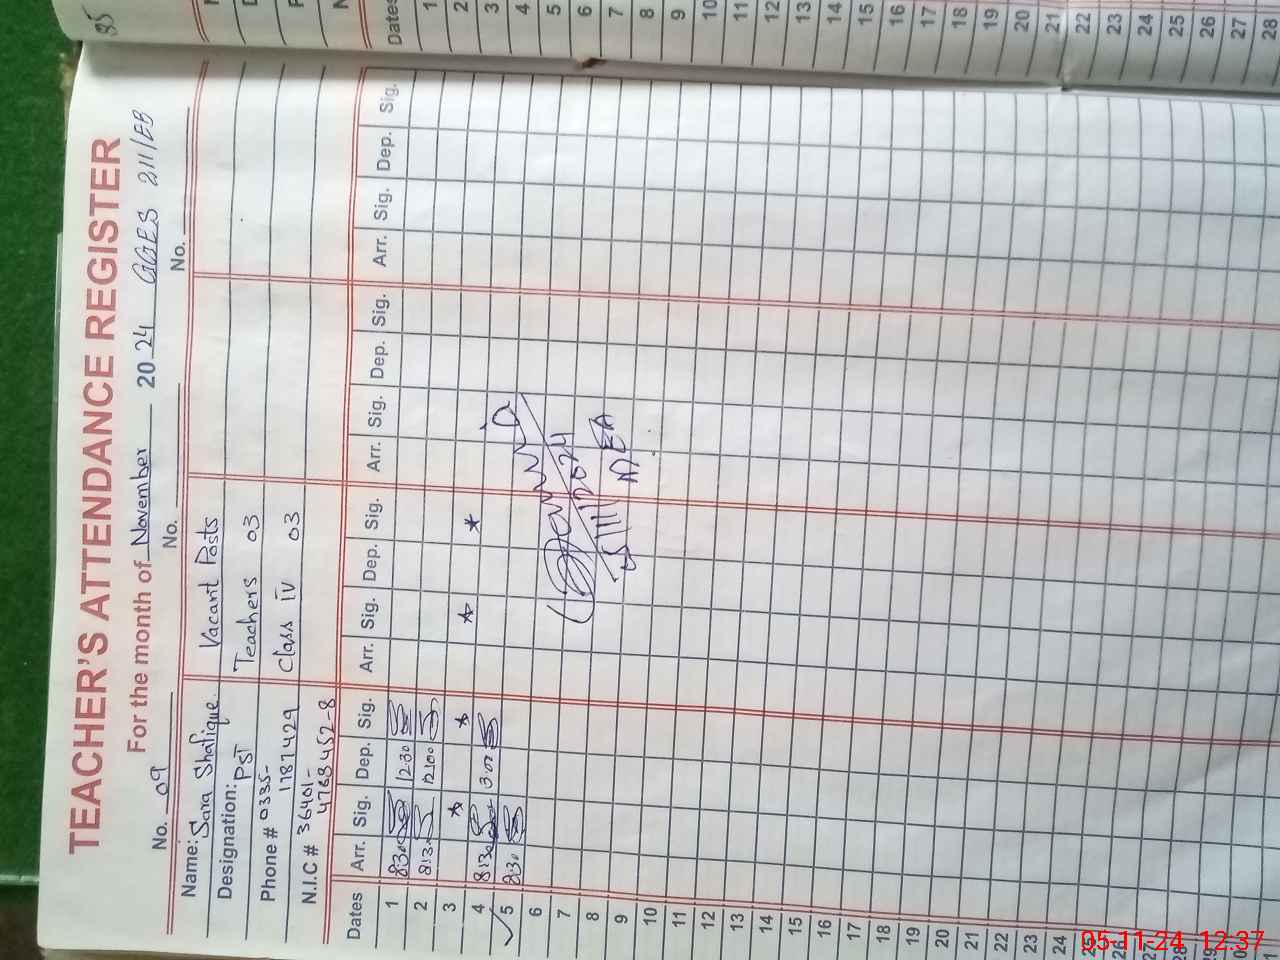 TEACHER'S ATTENDANCE REGISTER
For the month of November 20 24 GGES 211/EB
No. 09 No. No.
Name: Sara Shafique Vacant Posts
Designation: PST Teachers 03
Phone # 0335-
1787429 Class IV 03
N.I.C # 36401-
4768452-8
Dates Arr. Sig. Dep. Sig. Arr. Sig. Dep. Sig. Arr. Sig. Dep. Sig. Arr. Sig. Dep. Sig.
1 8:30 12:30
2 8:30 12:00
3
4 8:30 3:00
5 8:30
6
7
8
9
10
11
12
13
14
15
16
17
18
19
20
21
22
23
24
25
26
27
28
29
5/11/2024
AEA
85
Dates
1
2
3
4
5
6
7
8
9
10
11
12
13
14
15
16
17
18
19
20
21
22
23
24
25
26
27
28
05-11-24 12:37